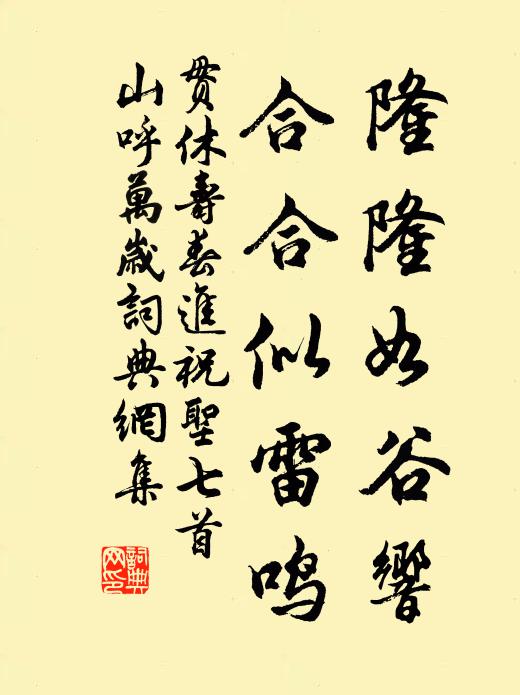 隆隆如谷響
合合似雷鳴
貫休壽春進祝聖七首
山呼萬歲詞典網集
詞典
网印